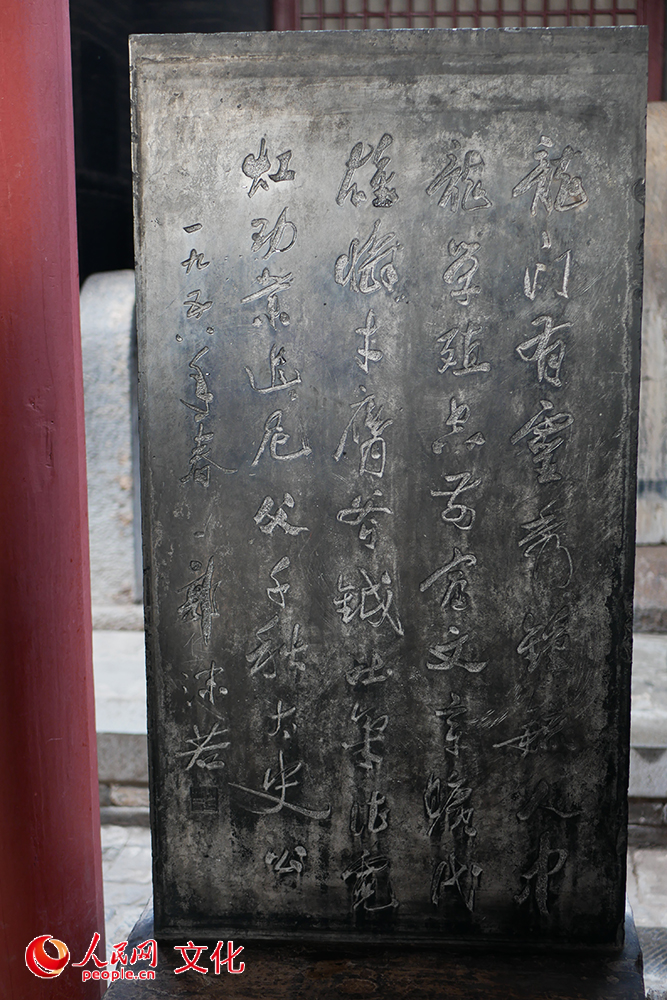 龍门有靈秀鍾毓人中
龍学殖空前富文章曠代
雄憐才膺斧鉞吐氣作霓
虹功業追尼父千秋太史公
一九五八年春
郭沫若
人民网 文化
people.cn